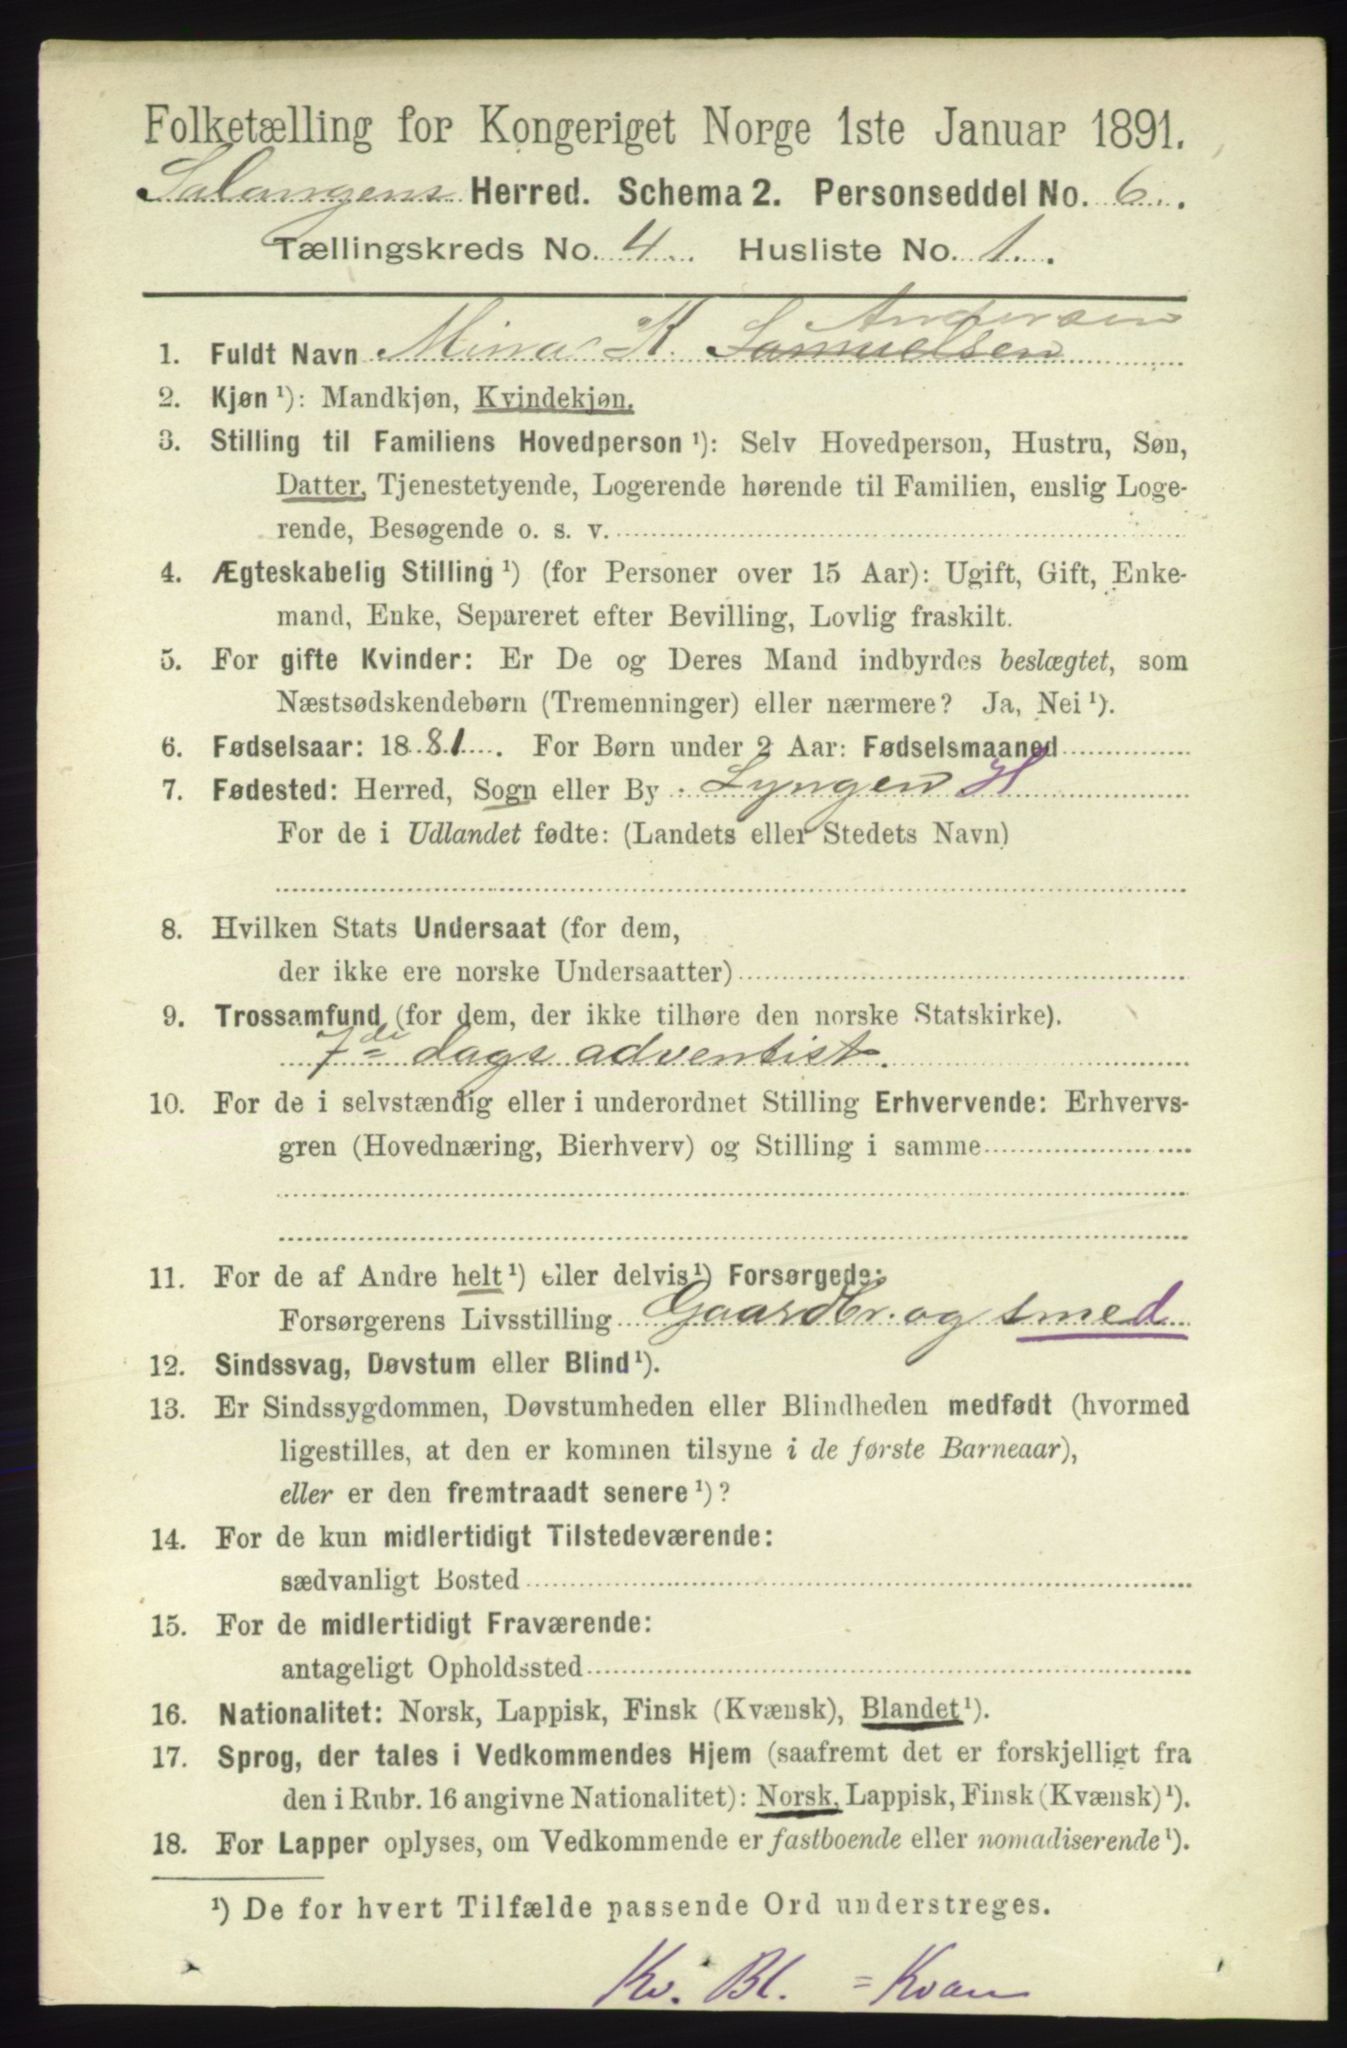 Folketælling for Kongeriget Norge 1ste Januar 1891.
Salangens Herred. Schema 2. Personseddel No. 6.
Tællingskreds No. 4 Husliste No. 1.
Andersen
1. Fuldt Navn Mina K. Samuelsen
2. Kjøn ¹): Mandkjøn, Kvindekjøn.
3. Stilling til Familiens Hovedperson ¹): Selv Hovedperson, Hustru, Søn,
Datter, Tjenestetyende, Logerende hørende til Familien, enslig Loge-
rende, Besøgende o. s. v.
4. Ægteskabelig Stilling ¹) (for Personer over 15 Aar): Ugift, Gift, Enke-
mand, Enke, Separeret efter Bevilling, Lovlig fraskilt.
5. For gifte Kvinder: Er De og Deres Mand indbyrdes beslægtet, som
Næstsødskendebørn (Tremenninger) eller nærmere? Ja, Nei ¹).
6. Fødselsaar: 1881. For Børn under 2 Aar: Fødselsmaaned
7. Fødested: Herred, Sogn eller By Lyngen H
For de i Udlandet fødte: (Landets eller Stedets Navn)
8. Hvilken Stats Undersaat (for dem,
der ikke ere norske Undersaatter)
9. Trossamfund (for dem, der ikke tilhøre den norske Statskirke).
7de dags adventist.
10. For de i selvstændig eller i underordnet Stilling Erhvervende: Erhvervs-
gren (Hovednæring, Bierhverv) og Stilling i samme
11. For de af Andre helt ¹) eller delvis ¹) Forsørgede:
Forsørgerens Livsstilling Gaardbr. og smed
12. Sindssvag, Døvstum eller Blind ¹).
13. Er Sindssygdommen, Døvstumheden eller Blindheden medfødt (hvormed
ligestilles, at den er kommen tilsyne i de første Barneaar),
eller er den fremtraadt senere ¹)?
14. For de kun midlertidigt Tilstedeværende:
sædvanligt Bosted
15. For de midlertidigt Fraværende:
antageligt Opholdssted
16. Nationalitet: Norsk, Lappisk, Finsk (Kvænsk), Blandet ¹).
17. Sprog, der tales i Vedkommendes Hjem (saafremt det er forskjelligt fra
den i Rubr. 16 angivne Nationalitet): Norsk, Lappisk, Finsk (Kvænsk) ¹).
18. For Lapper oplyses, om Vedkommende er fastboende eller nomadiserende ¹).
¹) De for hvert Tilfælde passende Ord understreges.
Kv. Bl. = Kvan